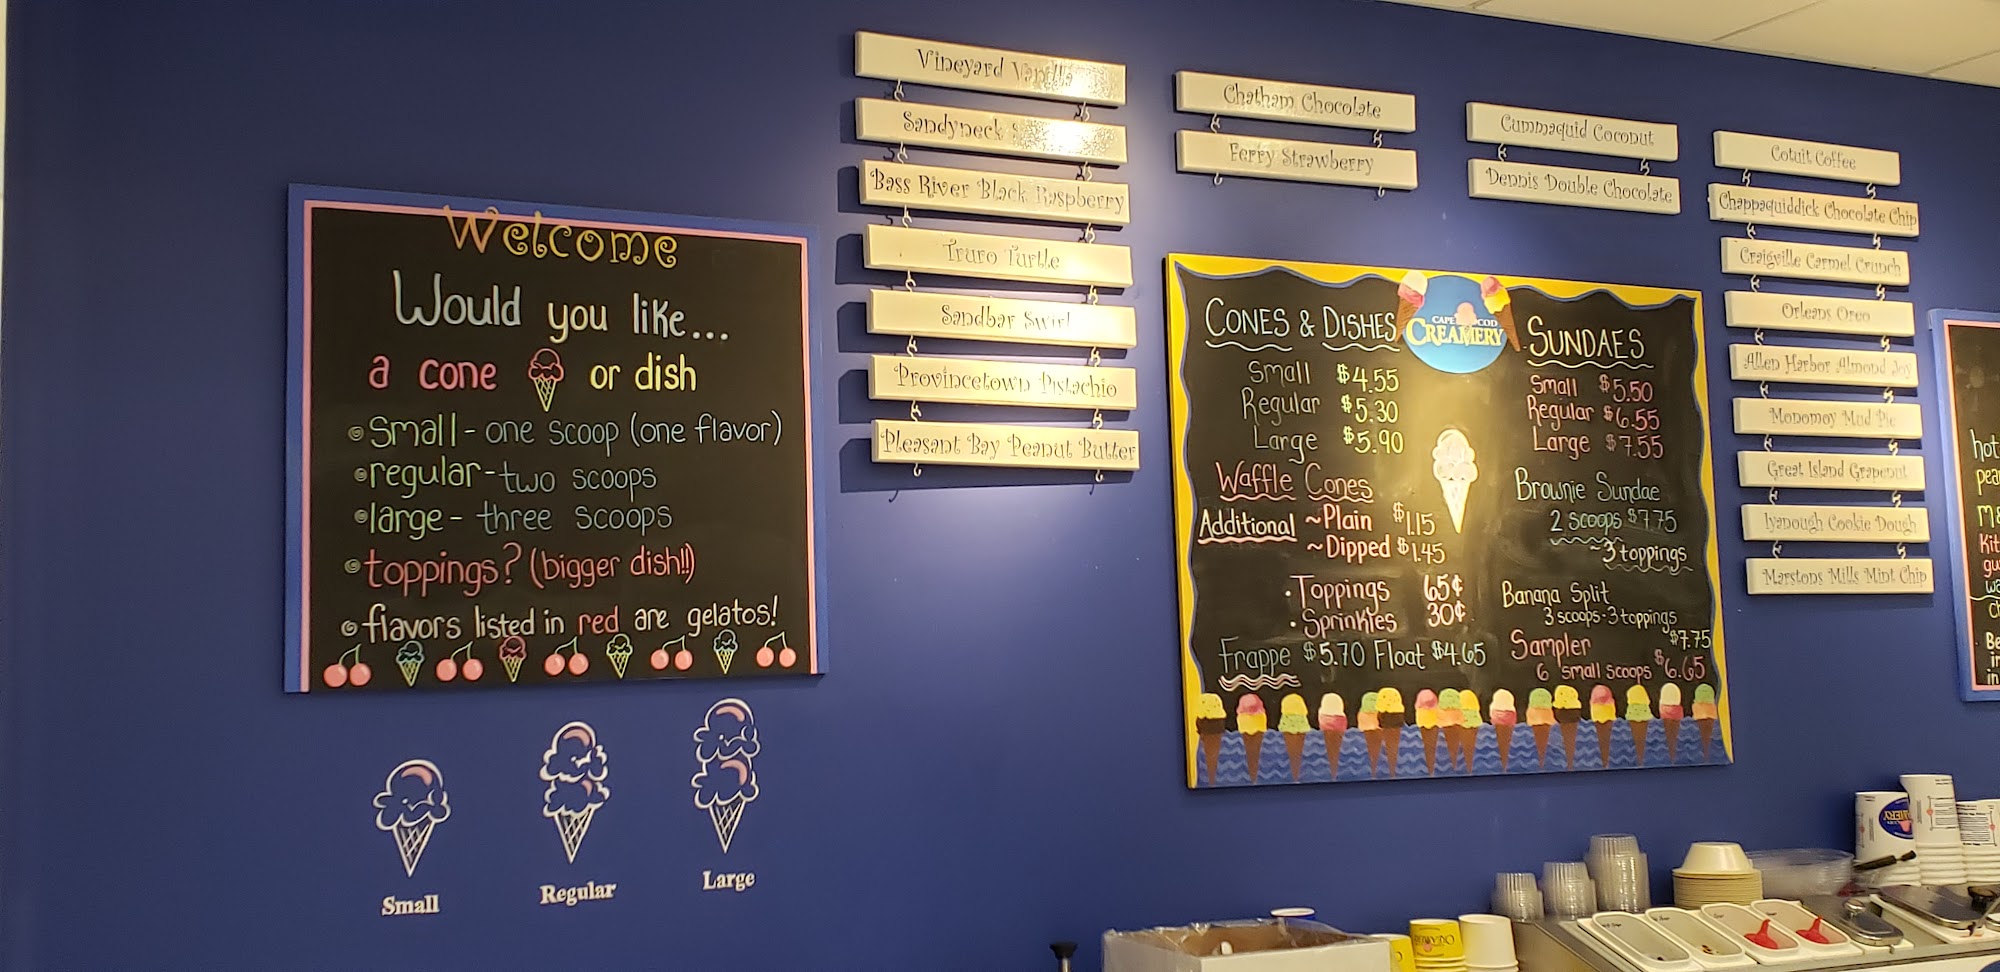 Welcome
Would you like...
a cone or dish
small - one scoop (one flavor)
regular - two scoops
large - three scoops
toppings? (bigger dish!!)
flavors listed in red are gelatos!
Small
Regular
Large
Vineyard Vanilla
Sandyneck
Bass River Black Raspberry
Truro Turtle
Sandbar Swirl
Provincetown Pistachio
Pleasant Bay Peanut Butter
Chatham Chocolate
Ferry Strawberry
Cummaquid Coconut
Dennis Double Chocolate
Cotuit Coffee
Chappaquiddick Chocolate Chip
Craigville Carmel Crunch
Orleans Oreo
Allen Harbor Almond Joy
Monomoy Mud Pie
Great Island Grapenut
Iyanough Cookie Dough
Marstons Mills Mint Chip
CAPE COD
CREAMERY
CONES & DISHES
Small $4.55
Regular $5.30
Large $5.90
Waffle Cones
Additional ~Plain $1.15
~Dipped $1.45
· Toppings 65¢
· Sprinkles 30¢
Frappe $5.70 Float $4.65
SUNDAES
Small $5.50
Regular $6.55
Large $7.55
Brownie Sundae
2 scoops $7.75
~3 toppings
Banana Split
3 scoops-3 toppings
$7.75
Sampler
6 small scoops $6.65
hot